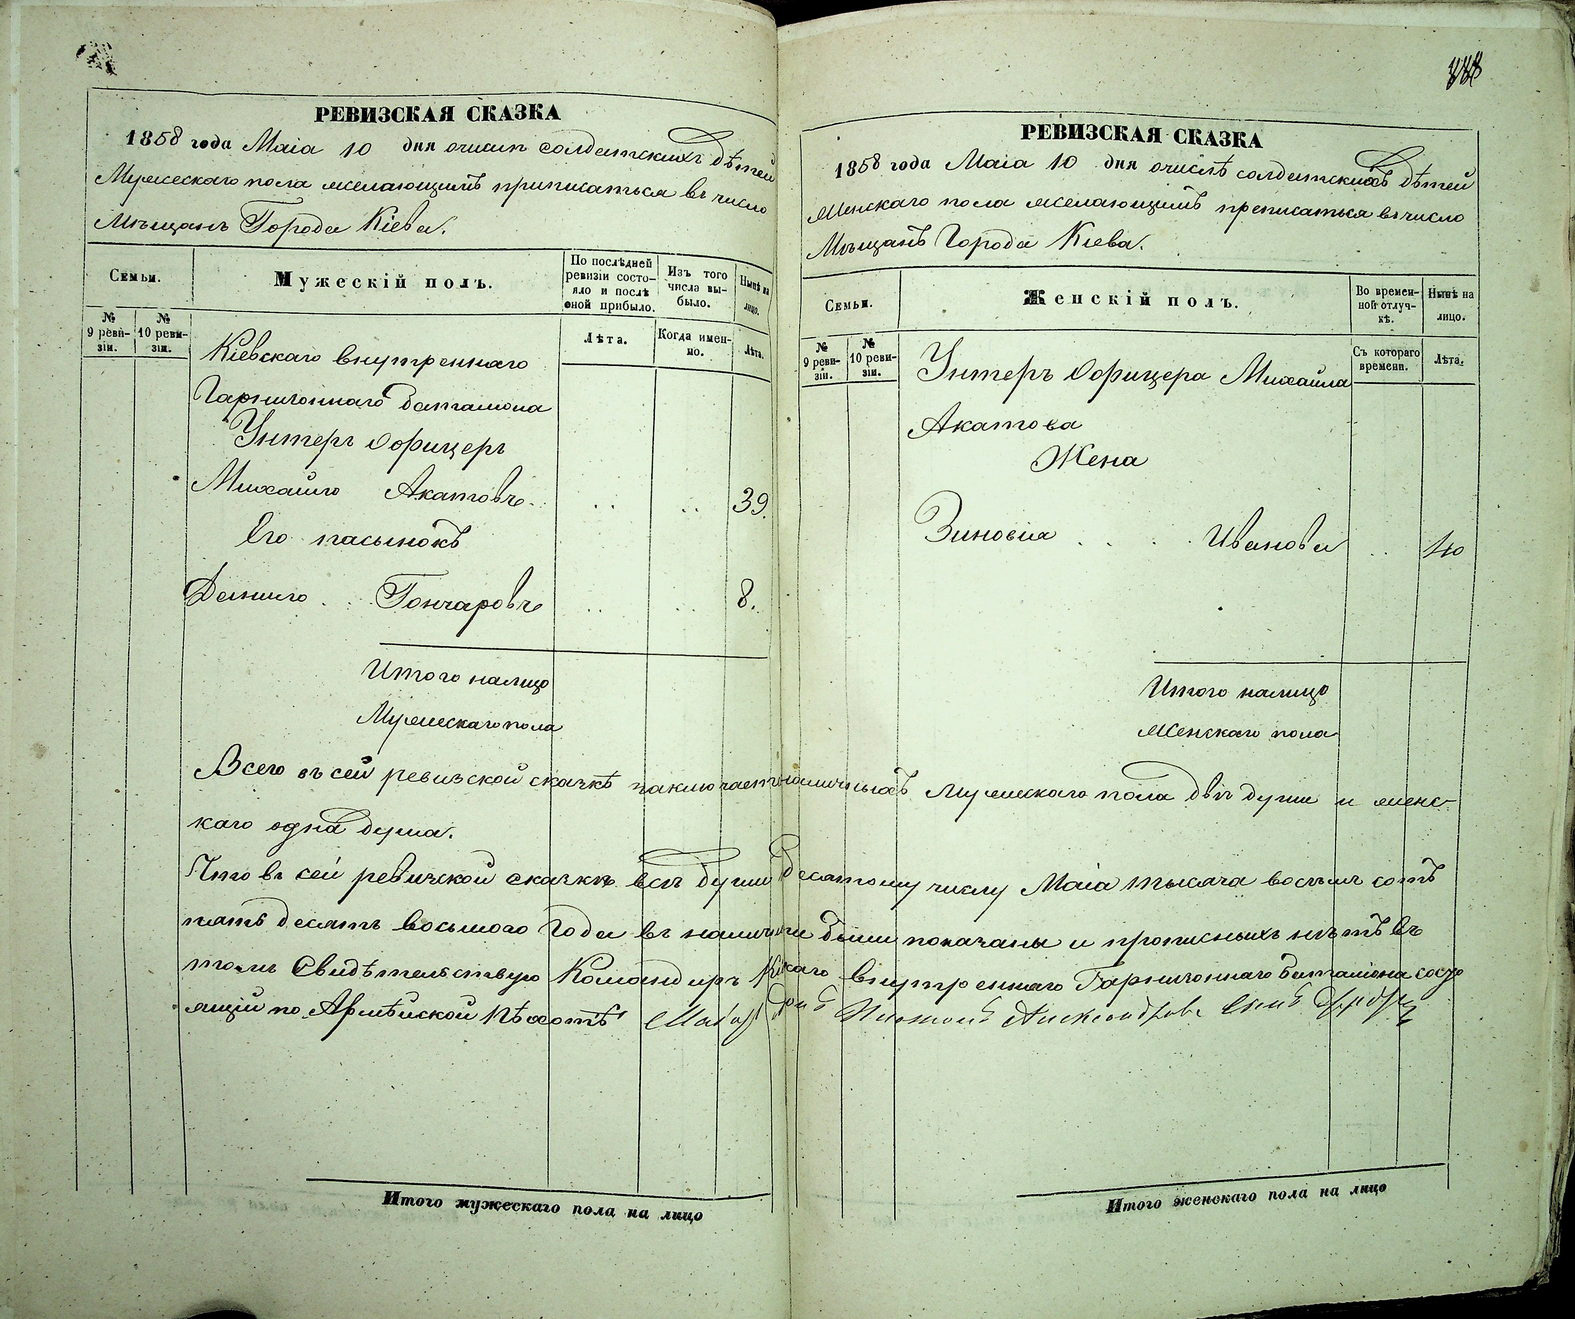 РЕВИЗСКАЯ СКАЗКА
1858 года Маiа 10 дня очисли солдатскихъ дѣтей
Мужескаго пола желающимъ приписаться въ число
Мѣщанъ Города Кіева.
Семьи.
Мужескій полъ.
По послѣдней ревизіи состояло и послѣ оной прибыло.
Изъ того числа выбыло.
Нынѣ на лицо.
№ 9 ревизіи.
№ 10 ревизіи.
Лѣта.
Когда именно.
Лѣта.
Кіевскаго внутреннаго
Гарнизоннаго баталіона
Унтеръ Офицеръ
Михайло Акатовъ . . . . 39.
Его пасынокъ
Данило . . Гончаровъ . . . . 8.
Итого налицо
Мужескаго пола
РЕВИЗСКАЯ СКАЗКА
1858 года Маiа 10 дня очислѣ солдатскихъ дѣтей
женскаго пола желающимъ преписаться въ число
Мѣщанъ Города Кіева.
Семьи.
Женскій полъ.
Во временной отлучкѣ.
Нынѣ на лицо.
№ 9 ревизіи.
№ 10 ревизіи.
Съ котораго времени.
Лѣта.
Унтеръ Офицера Михайла
Акатова
Жена
Зиновія . . . Иванова . . 40
Итого налицо
женскаго пола
Всего въ сей ревизской сказкѣ заключается наличныхъ Мужескаго пола двѣ души и женс-
каго одна душа.
Что въ сей ревизской сказкѣ всѣ души десятому числу Маiа тысяча восемь сотъ
пятьдесятъ восьмого Года въ наличіи были показаны и прописныхъ нѣтъ въ
томъ Свидѣтельствую Командиръ Кіевскаго внутреннаго Гарнизоннаго баталіона состо
ящій по Армѣйской Пѣхотѣ Маіоръ
Итого мужескаго пола на лицо
Итого женскаго пола на лицо